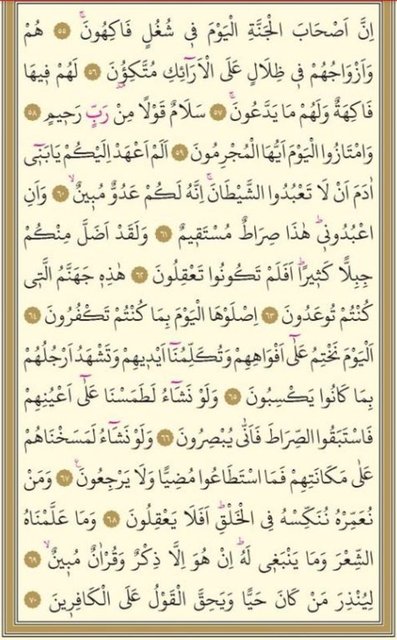 اِنَّ اَصْحَابَ الْجَنَّةِ الْيَوْمَ ف۪ي شُغُلٍ فَاكِهُونَۚ ﴿٥٥﴾ هُمْ
وَاَزْوَاجُهُمْ ف۪ي ظِلَالٍ عَلَى الْاَرَٓائِكِ مُتَّكِؤُ۫نَ ﴿٥٦﴾ لَهُمْ ف۪يهَا
فَاكِهَةٌ وَلَهُمْ مَا يَدَّعُونَۚ ﴿٥٧﴾ سَلَامٌ قَوْلًا مِنْ رَبٍّ رَح۪يمٍ ﴿٥٨﴾
وَامْتَازُوا الْيَوْمَ اَيُّهَا الْمُجْرِمُونَ ﴿٥٩﴾ اَلَمْ اَعْهَدْ اِلَيْكُمْ يَابَن۪ٓي
اٰدَمَ اَنْ لَا تَعْبُدُوا الشَّيْطَانَۚ اِنَّهُ لَكُمْ عَدُوٌّ مُب۪ينٌۙ ﴿٦٠﴾ وَاَنِ
اعْبُدُون۪يۜ هٰذَا صِرَاطٌ مُسْتَق۪يمٌ ﴿٦١﴾ وَلَقَدْ اَضَلَّ مِنْكُمْ
جِبِلًّا كَث۪يرًاۜ اَفَلَمْ تَكُونُوا تَعْقِلُونَ ﴿٦٢﴾ هٰذِه۪ جَهَنَّمُ الَّت۪ي
كُنْتُمْ تُوعَدُونَ ﴿٦٣﴾ اِصْلَوْهَا الْيَوْمَ بِمَا كُنْتُمْ تَكْفُرُونَ ﴿٦٤﴾
اَلْيَوْمَ نَخْتِمُ عَلٰٓى اَفْوَاهِهِمْ وَتُكَلِّمُنَٓا اَيْد۪يهِمْ وَتَشْهَدُ اَرْجُلُهُمْ
بِمَا كَانُوا يَكْسِبُونَ ﴿٦٥﴾ وَلَوْ نَشَٓاءُ لَطَمَسْنَا عَلٰٓى اَعْيُنِهِمْ
فَاسْتَبَقُوا الصِّرَاطَ فَاَنّٰى يُبْصِرُونَ ﴿٦٦﴾ وَلَوْ نَشَٓاءُ لَمَسَخْنَاهُمْ
عَلٰى مَكَانَتِهِمْ فَمَا اسْتَطَاعُوا مُضِيًّا وَلَا يَرْجِعُونَ۟ ﴿٦٧﴾ وَمَنْ
نُعَمِّرْهُ نُنَكِّسْهُ فِي الْخَلْقِۜ اَفَلَا يَعْقِلُونَ ﴿٦٨﴾ وَمَا عَلَّمْنَاهُ
الشِّعْرَ وَمَا يَنْبَغ۪ي لَهُۜ اِنْ هُوَ اِلَّا ذِكْرٌ وَقُرْاٰنٌ مُب۪ينٌۙ ﴿٦٩﴾
لِيُنْذِرَ مَنْ كَانَ حَيًّا وَيَحِقَّ الْقَوْلُ عَلَى الْكَافِر۪ينَ ﴿٧٠﴾